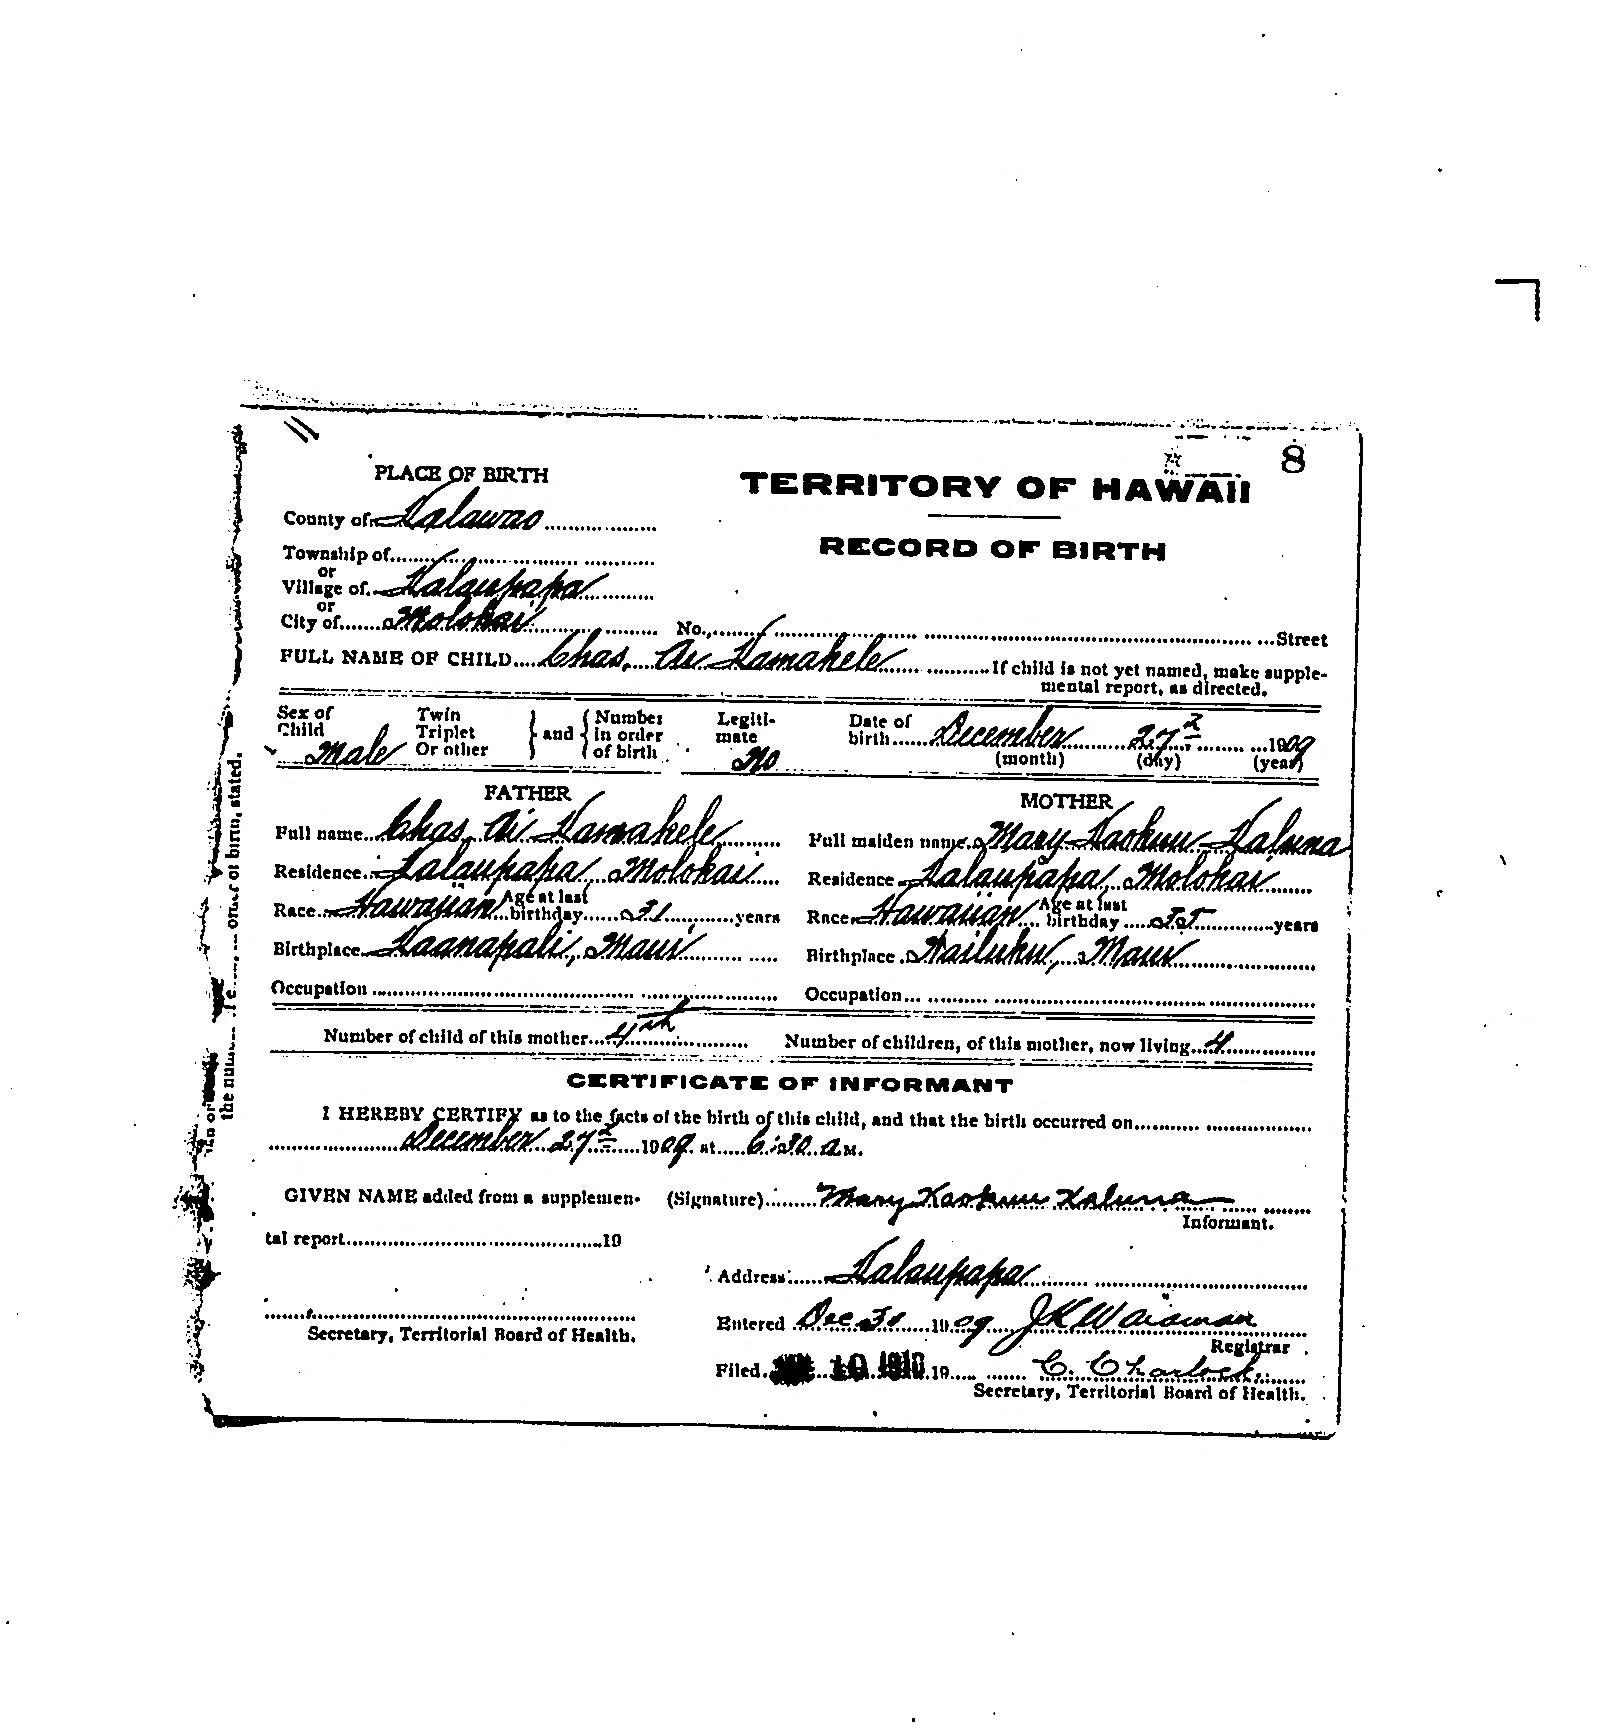 8
PLACE OF BIRTH
TERRITORY OF HAWAII
County of Kalawao
RECORD OF BIRTH
Township of
or
Village of Kalaupapa
or
City of Molokai No. Street
FULL NAME OF CHILD Chas. Ai Kamakele If child is not yet named, make supple-
mental report, as directed.
Sex of Child Male Twin Triplet Or other } and { Number in order of birth Legiti- mate No Date of birth December 27 1909
(month) (day) (year)
FATHER
Full name Chas. Ai Kamakele
Residence Kalaupapa, Molokai
Race Hawaiian Age at last birthday 31 years
Birthplace Kaanapali, Maui
Occupation
MOTHER
Full maiden name Mary Kaokuu Kaluna
Residence Kalaupapa, Molokai
Race Hawaiian Age at last birthday years
Birthplace Wailuku, Maui
Occupation
Number of child of this mother 4th Number of children, of this mother, now living 4
CERTIFICATE OF INFORMANT
I HEREBY CERTIFY as to the facts of the birth of this child, and that the birth occurred on
December 27 1909 at 6:30 a M.
GIVEN NAME added from a supplemen- (Signature) Mary Kaokuu Kaluna
Informant.
tal report 19
Address Kalaupapa
Entered Dec 30 1909 J K Waiamau
Secretary, Territorial Board of Health.
Registrar
Filed 10 1910 19 C. Charlock
Secretary, Territorial Board of Health.
order of birth, stated.
the num